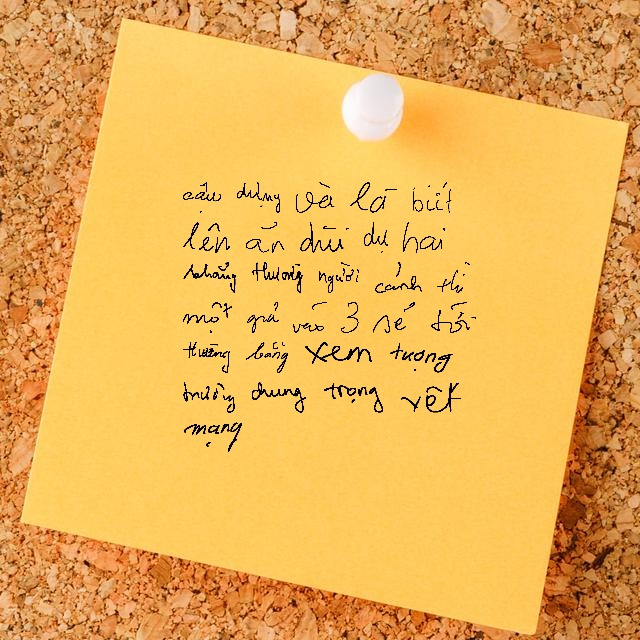 cậu dựng và là biết
lên ăn dùi dụ hai
thường người cảnh thị
một quả vào 3 sẽ tới
thường bằng xem tượng
trường dung trọng vết
mạng